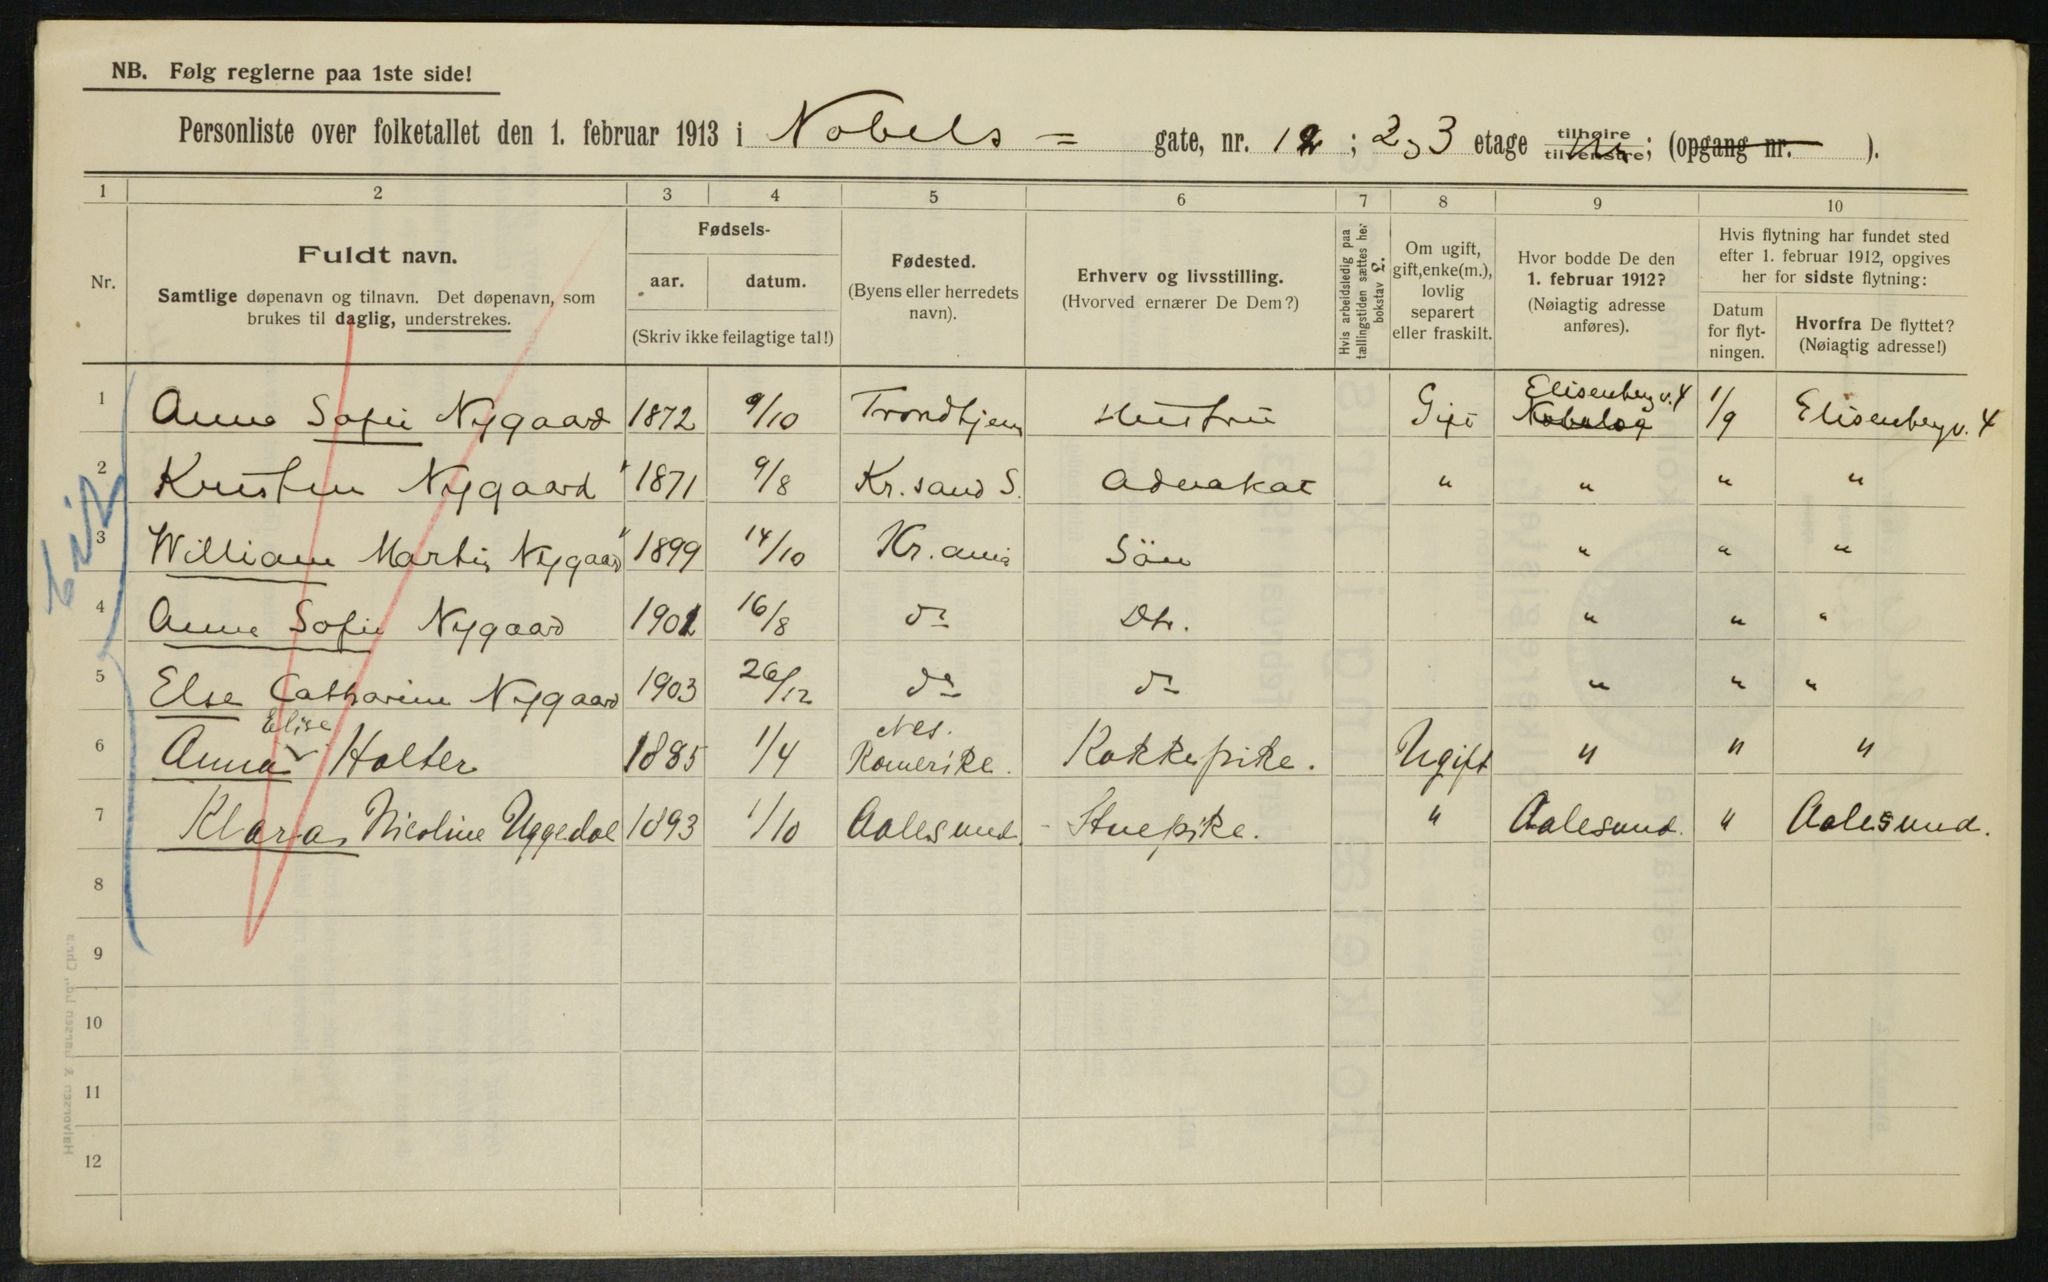 NB. Følg reglerne paa 1ste side!
Personliste over folketallet den 1. februar 1913 i Nobels = gate, nr. 12 ; 2, 3 etage tilhøire tilvenstre; (opgang nr. ).
1 2 3 4 5 6 7 8 9 10
Nr.
Fuldt navn.
Samtlige døpenavn og tilnavn. Det døpenavn, som
brukes til daglig, understrekes.
Fødsels-
aar. datum.
(Skriv ikke feilagtige tal!)
Fødested.
(Byens eller herredets
navn).
Erhverv og livsstilling.
(Hvorved ernærer De Dem?)
Hvis arbeidsledig paa
tællingstiden sættes her
bokstav L.
Om ugift,
gift, enke(m.),
lovlig
separert
eller fraskilt.
Hvor bodde De den
1. februar 1912?
(Nøiagtig adresse
anføres).
Hvis flytning har fundet sted
efter 1. februar 1912, opgives
her for sidste flytning:
Datum
for flyt-
ningen.
Hvorfra De flyttet?
(Nøiagtig adresse!)
1 Anna Sofie Nygaard 1872 9/10 Trondhjem Hustru Gift Elisenberg v. 4 1/9 Elisenberg v. 4
2 Kristen Nygaard " 1871 9/8 Kr. sand S. Advokat " " " "
3 William Martin Nygaard " 1899 14/10 Kr. ania Sön " " "
4 Anna Sofie Nygaard 1901 16/8 do Dtr. " " "
5 Else Catharine Nygaard 1903 26/12 do do " " "
6 Anna Elise Holter 1885 1/4 Nes. Romerike. Kokkepike. Ugift " " "
7 Klara Nicoline Uggedal 1893 1/10 Aalesund. - Stuepike. " Aalesund. " Aalesund.
8
9
10
11
12
Halvorsen & Larsen Ld., Chr.a